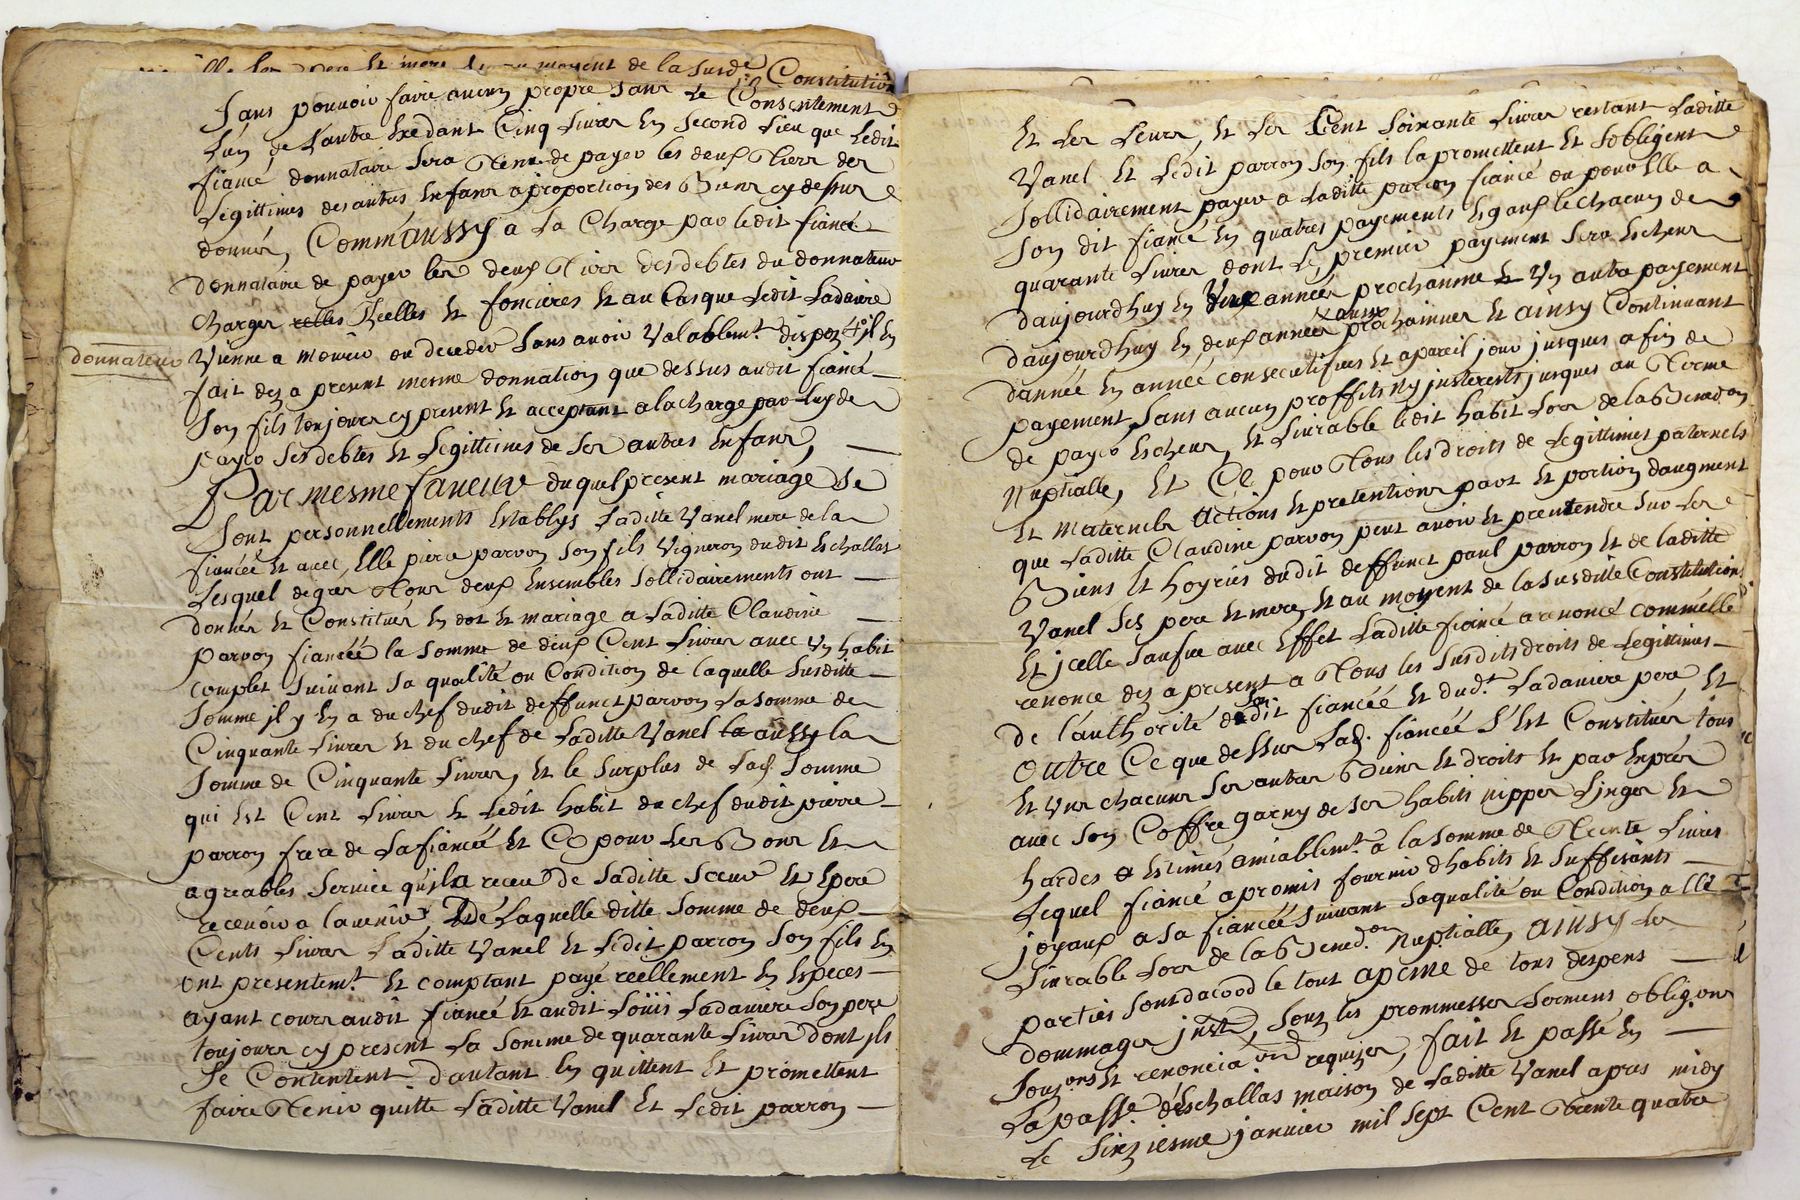 pere et mere et au moyent de la susd.e Constitution
Sans pouvoir faire aucun propre sans le Consentement
Lun de Lautre Excedant Cinq Livres En second Lieu que Ledit
fiancé donnataire sera Tenu de payer les deux Tiers des
Legittimes des autres Enfans a proportion des Biens cy dessus
donnés, Comm'aussy a La Charge par ledit fiancé
donnataire de payer les deux Tiers des debtes du donnateur
charges relles Icelles et foncieres Et au Cas que Ledit Ladaviere
donnateur
Vienne a mourir ou deceder Sans avoir Valablem.t dispozé il En
fait dez a present mesme donnation que dessus audit fiancé
Son fils toujours cy present Et acceptant a la charge par luy de
payer Ses debtes Et Legittimes de Ses autres Enfans,
Par mesme faveur duquel present mariage Se
Sont personnellements Establys Laditte Vanel mere de la
fiancée Et avec Elle pierre parron Son fils Vigneron dudit Eschallas
Lesquel de gres Tous deux Ensembles Sollidairements ont
donnés Et Constitués En dot Et mariage a Laditte Claudine
parron fiancée la Somme de deux Cent Livres avec Un habit
complet Suivant Sa qualité ou Condition de laquelle Susditte
Somme il y En a du chef dudit deffunct parron La Somme de
Cinquante Livres Et du chef de Laditte Vanel la aussy la
Somme de Cinquante Livres, Et le Surplus de Lad. Somme
qui Est Cent Livres Et Ledit habit du chef dudit pierre
parron frere de La fiancée Et Ce pour Les Bons Et
agreables Service qu'il a receu de Saditte Soeur Et Espere
recevoir a lavenir, De Laquelle ditte Somme de deux
Cents Livres Laditte Vanel Et Ledit parron Son fils En
ont presentem.t Et comptant payé reellement En Especes
ayant cours audit fiancé Et audit Loüis Ladaviere Son pere
toujours cy present La Somme de quarante Livres dont ils
Se Contentent D'autant En quittent Et promettent
faire Tenir quitte Laditte Vanel Et Ledit parron
Et Les Leurs, Et Les Cent Soixante Livres restant Laditte
Vanel Et Ledit parron Son fils la promettent Et Sobligent
Sollidairement payer a Laditte parron fiancé ou pour Elle a
Son dit fiancé En quatres payements Esgaux le chacun de
quarante Livres dont Le premier payement Sera Escheus
daujourdhuy En Une année prochainne Et Un autre payement
daujourdhuy En deux années aussy prochainnes Et ainsy Continuant
dannée En année consecutifves Et a pareil jour jusques a fin de
payement, Sans aucun proffits ny justerests jusques au Terme
de payer Escheus, Et Livrable ledit habit Lors de la Bened.on
Nuptialle, Et Ce pour Tous les droits de Legittimes paternels
Et maternels Actions Et pretentions part Et portion daugment
que Laditte Claudine parron peut avoir Et prentendre Sur Les
Biens Et hoyries dudit deffunct paul parron Et de laditte
Vanel Ses pere Et mere, Et au moyent de la Susditte Constitution
Et jcelle Saufve avec Effet Laditte fiancé a renoncé comm'elle
renonce dez a present a Tous les Susdits droits de Legittimes
De l'authorité dudit son fiancéé Et dud.t Ladaviere pere, Et
Outre Ce que dessus Lad. fiancéé S'Est Constitués tous
Et Uns chacuns Ses autres Biens Et droits Et par Exprés
avec Son Coffre garny de Ses habits nippes Linges Et
hardes Estimés amiablem.t a la Somme de Trente Livres
Lequel fiancé a promis fournir dhabits Et Suffisants
joyaux a Sa fiancéé Suivant Sa qualité ou Condition a Elle
Livrable Lors de la Bened.on Nuptialle, Ainsy Les
parties Sont dacood le tout a peine de tous despens
dommages jnst, Sous les prommesses Sermens oblig.ons
Soux.ons Et renoncia.ons requizes, fait Et passé En
La passe d'Eschallas maison de Laditte Vanel apres midy
Le Sinziesme janvier mil Sept Cent Trente quatre